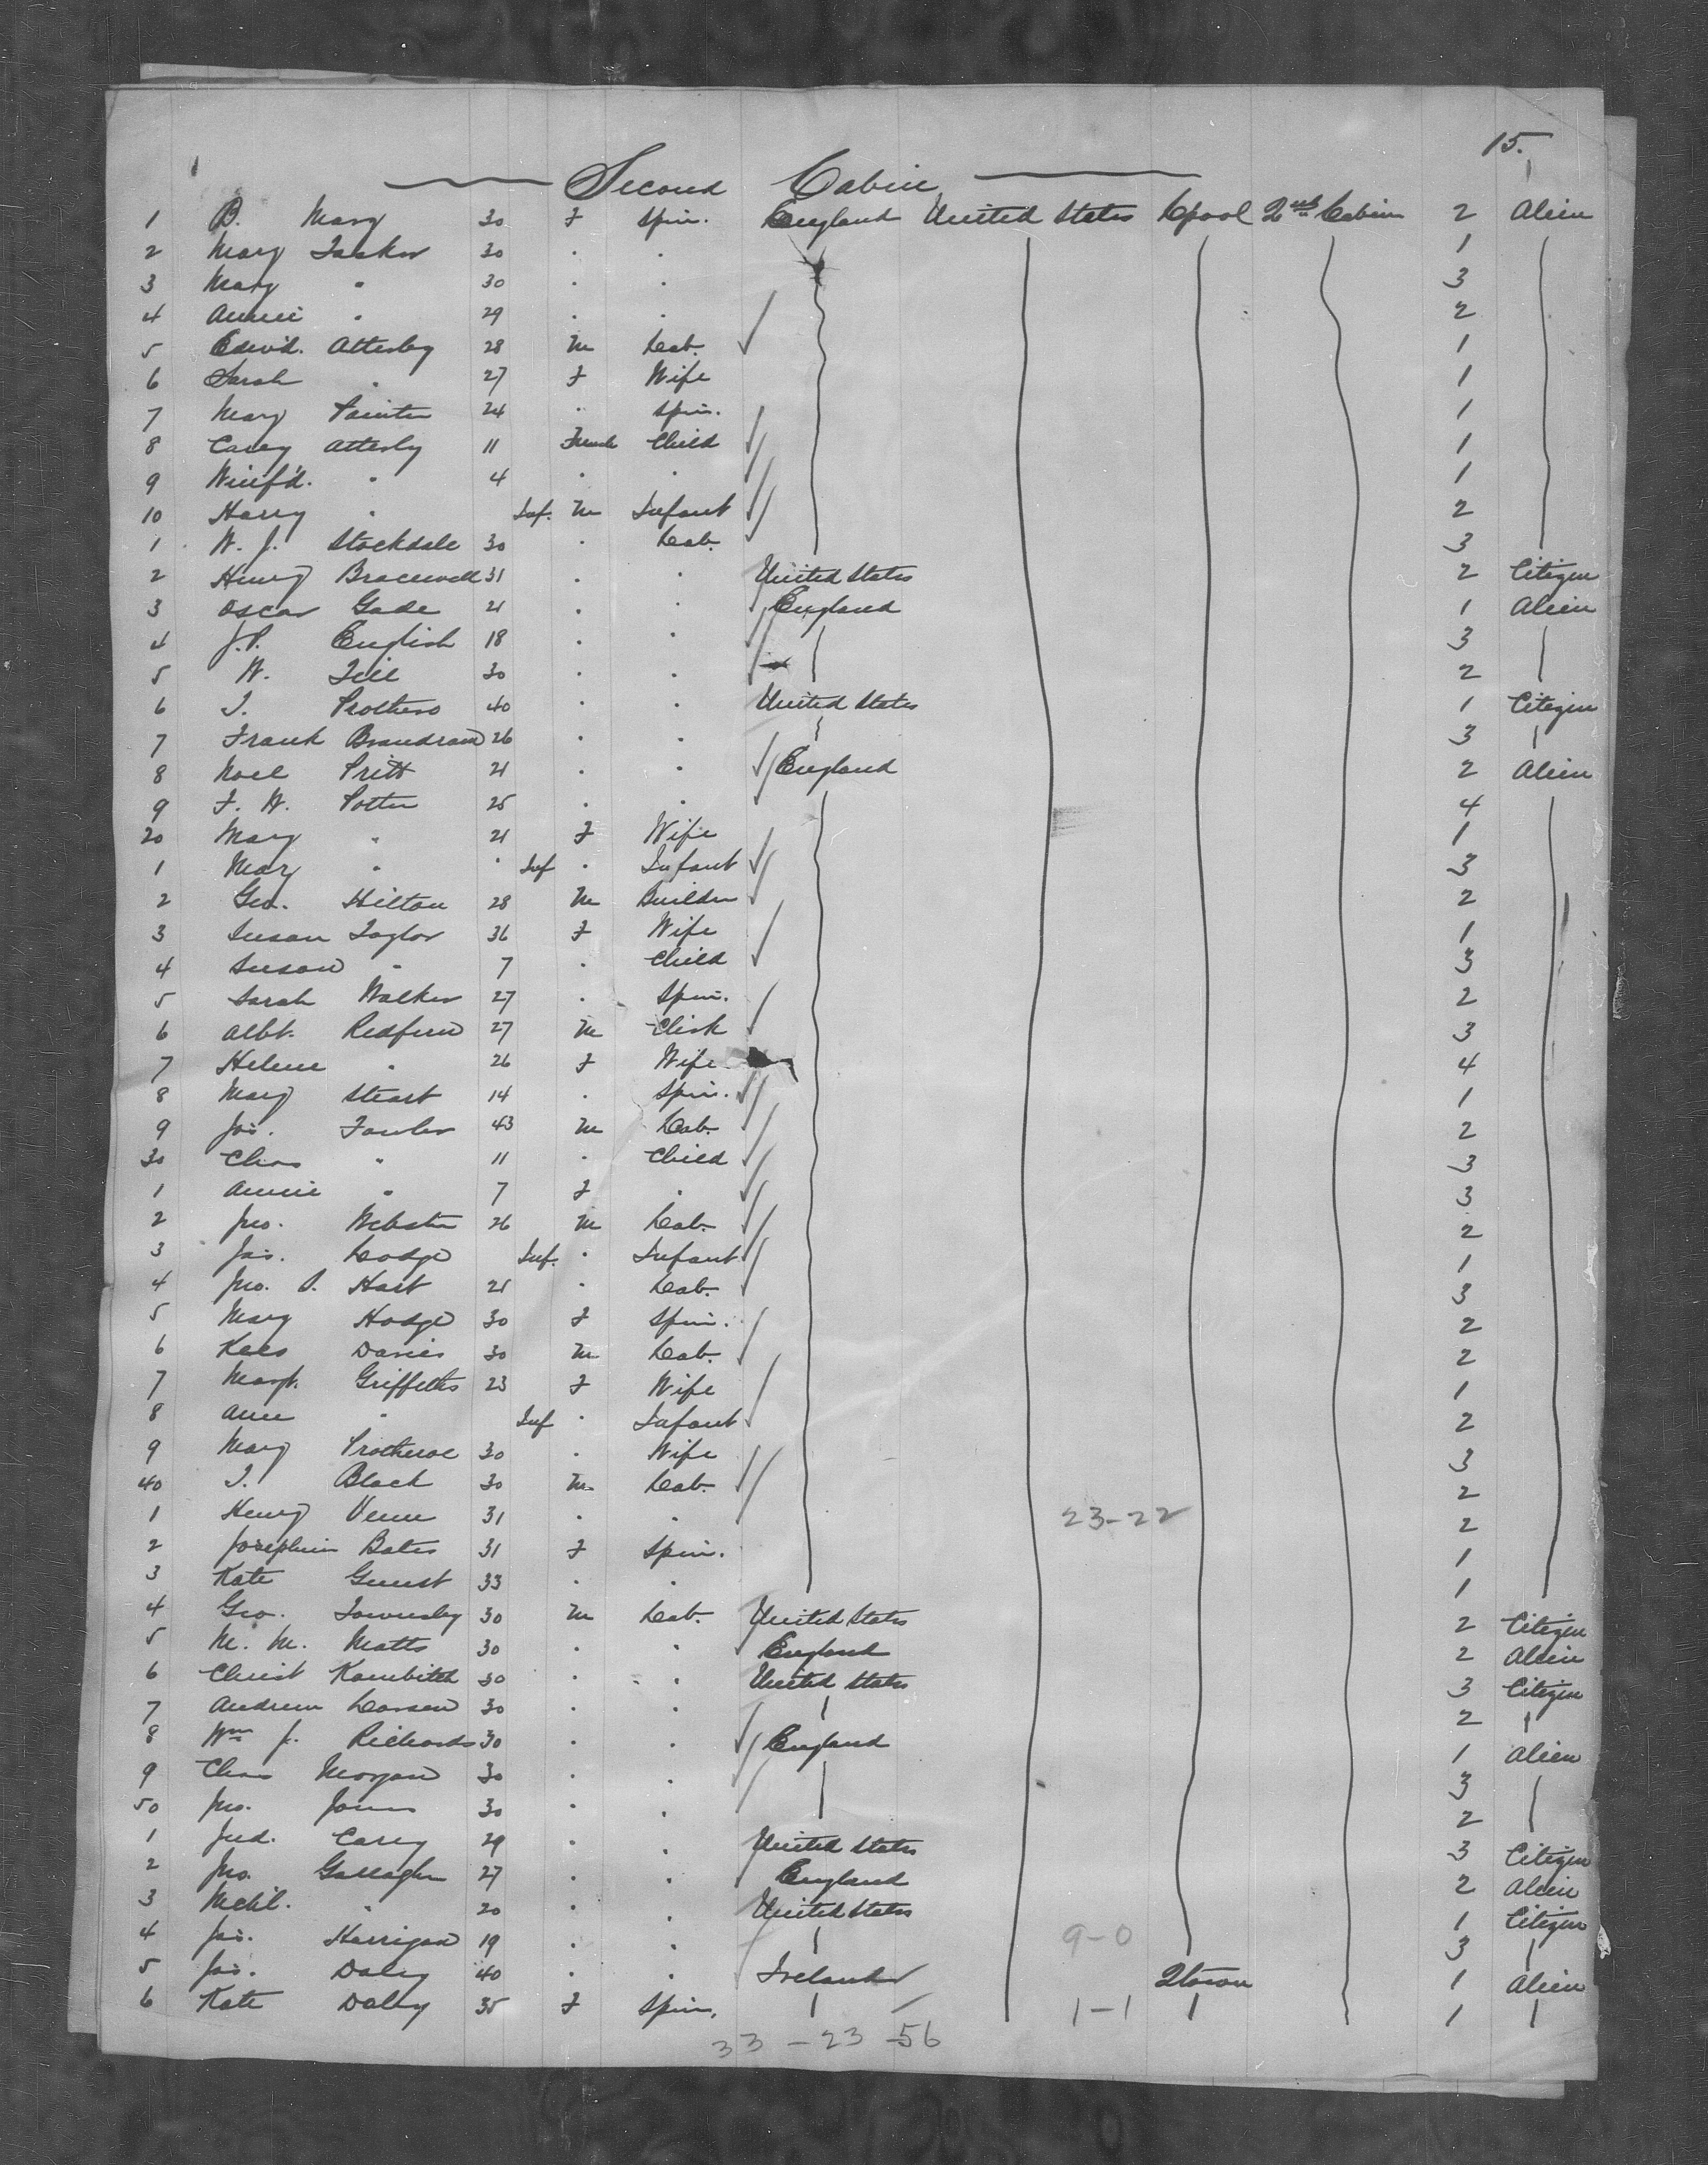 15.
Second Cabin
1 B. Mary 30 F Spin. England United States Lpool 2nd Cabin 2 Alien
2 Mary Tasker 30 " " 1
3 Mary " 30 " " 3
4 Annie " 29 " " 2
5 Edwd. Atterby 28 M Lab. 1
6 Sarah " 27 F Wife 1
7 Mary Painter 24 " Spin. 1
8 Carey Atterby 11 Child 1
9 Winif'd. " 4 " " 1
10 Harry " Inf. M Infant 2
1 W. J. Stockdale 30 " Lab. 3
2 Henry Bracewell 31 " " United States 2 Citizen
3 Oscar Gade 21 " " England 1 Alien
4 J.P. English 18 " " 3
5 W. Till 30 " " 2
6 T. Prothero 40 " " United States 1 Citizen
7 Frank 26 " " 3
8 Noel Pritt 21 " " England 2 Alien
9 F. W. Potter 25 " " 4
20 Mary " 21 F Wife 1
1 Mary " " Inf " Infant 3
2 Geo. Hilton 28 M Builder 2
3 Susan Taylor 36 F Wife 1
4 Susan " 7 " Child 3
5 Sarah Walker 27 " Spin. 2
6 Albt. Redfern 27 M Clerk 3
7 Helene " 26 F Wife 4
8 Mary Steart 14 " Spin. 1
9 Jas. Fowler 43 M Lab. 2
30 Chas " 11 " Child 3
1 Annie " 7 F " 3
2 Jno. Webster 26 M Lab. 2
3 Jas. Lodge Inf. " Infant 1
4 Jno. P. Hart 21 " Lab. 3
5 Mary Hodge 30 F Spin. 2
6 Rees Davies 30 M Lab. 2
7 Margt. Griffiths 23 F Wife 1
8 Ann " Inf " Infant 2
9 Mary Protheroe 30 " Wife 3
40 T. Black 30 M Lab. 2
1 Henry Venn 31 " " 23-22 2
2 Josephin Bates 31 F Spin. 1
3 Kate 33 " " 1
4 Geo. Townsley 30 M Lab. United States 2 Citizen
5 M. M. Matts 30 " " England 2 Alien
6 Christ 30 " " United States 3 Citizen
7 Andrew Larsen 30 " " 2
8 Wm J. Richards 30 " " England 1 Alien
9 Chas Morgan 30 " " 3
50 Jno. Jones 30 " " 2
1 Jud. Carey 29 " " United States 3 Citizen
2 Jno. Gallagher 27 " " England 2 Alien
3 Michl. " 20 " " United States 1 Citizen
4 Jas. Harrigan 19 " " 9-0 3
5 Jas. Daley 40 " " Ireland Qtown 1 Alien
6 Kate Daley 35 F Spin. 1-1 1
33 - 23 - 56